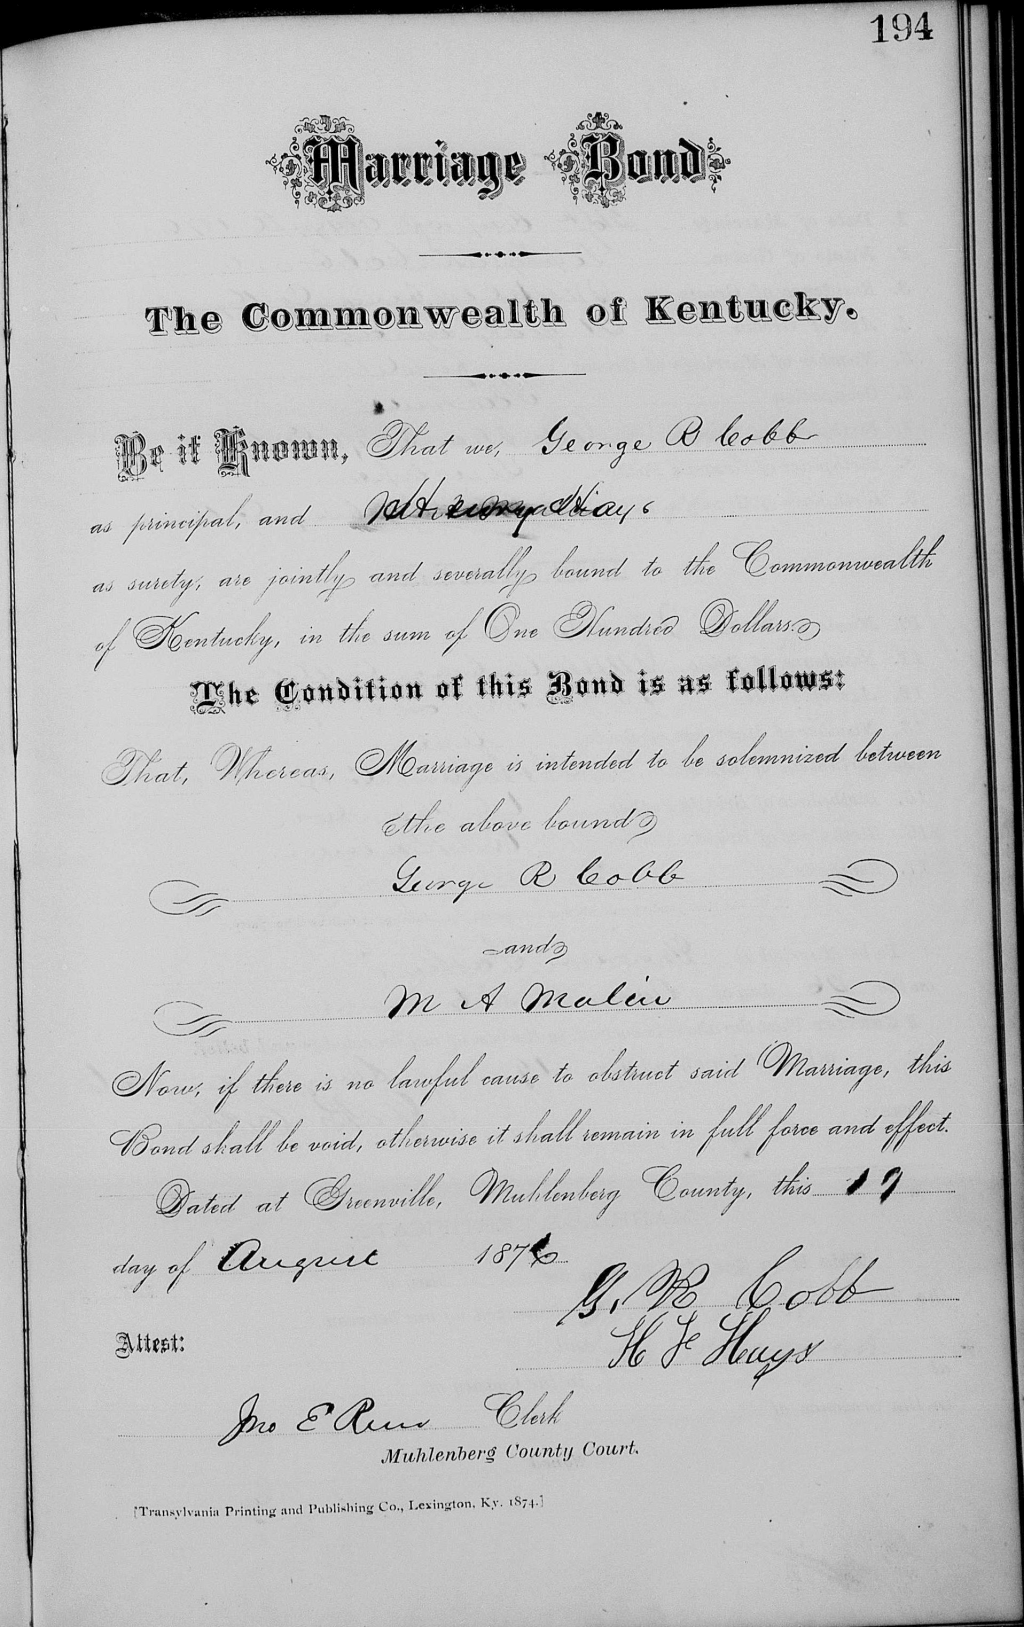 194
Marriage Bond
The Commonwealth of Kentucky.
Be it Known, That we, George R Cobb
as principal, and Hays
as surety, are jointly and severally bound to the Commonwealth
of Kentucky, in the sum of One Hundred Dollars.
The Condition of this Bond is as follows:
That, Whereas, Marriage is intended to be solemnized between
the above bound
George R Cobb
and
M A Malin
Now, if there is no lawful cause to obstruct said Marriage, this
Bond shall be void, otherwise it shall remain in full force and effect.
Dated at Greenville, Muhlenberg County, this 19
day of August 1876
G. R Cobb
Attest:
H F Hays
Jno E Reno Clerk
Muhlenberg County Court.
[Transylvania Printing and Publishing Co., Lexington, Ky. 1874.]